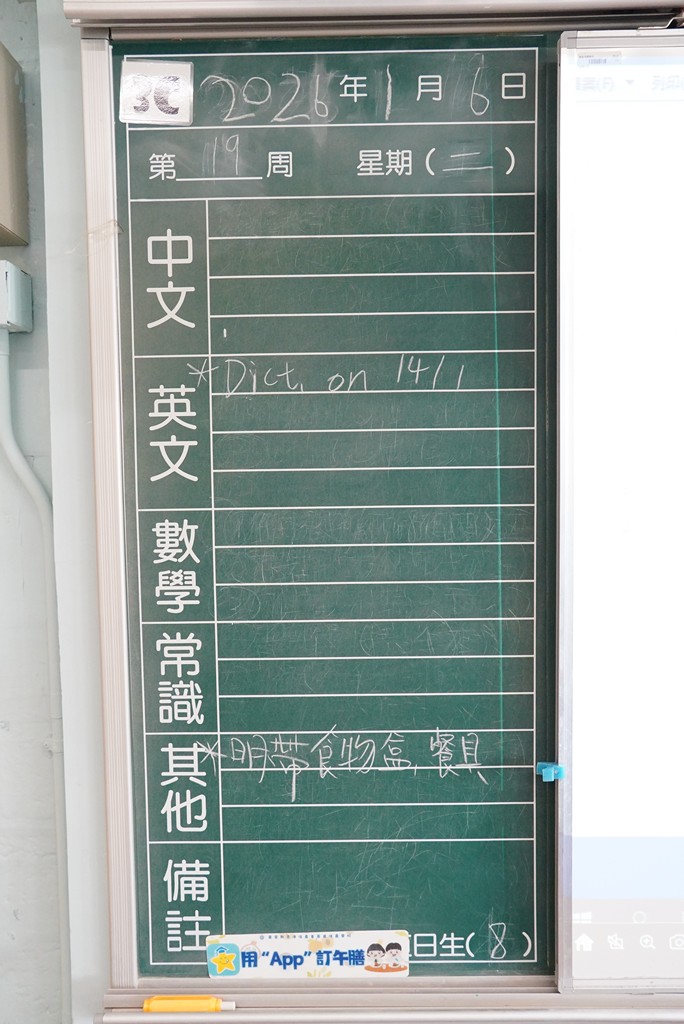 3C 2026年1月6日
第19周 星期(二)
中文
英文
*Dict. on 14/1
數學
常識
其他
*明帶食物盒,餐具
備註
日生(8)
用“App”訂午膳